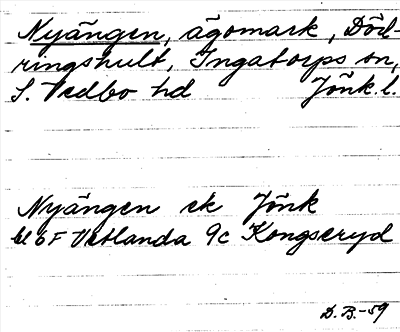 Nyängen, ägomark, Död-
ringshult, Ingatorps sn,
S. Vedbo hd Jönk.l.
Nyängen ek Jönk
bl 6F Vetlanda 9c Kongseryd
D.B.-59